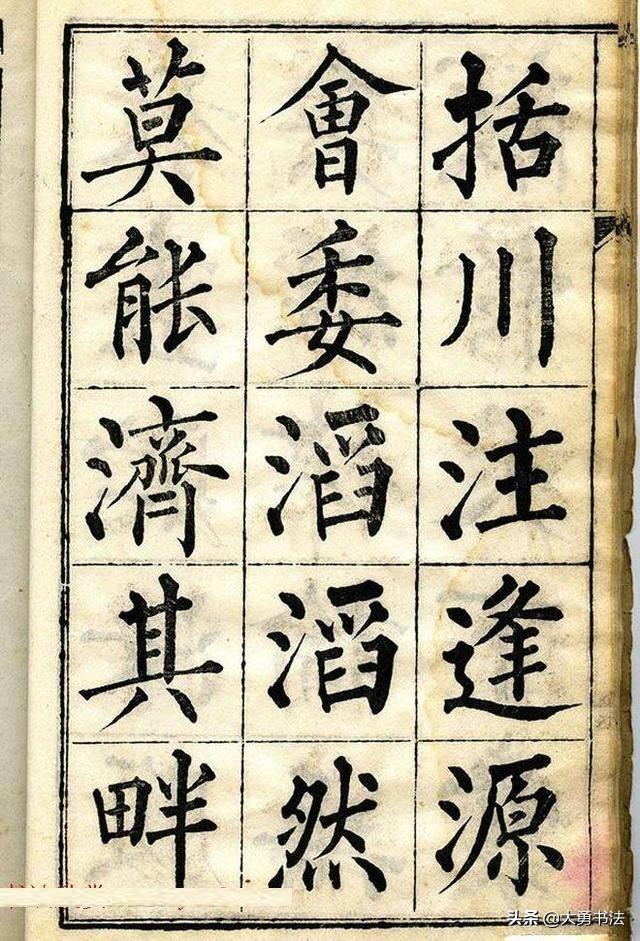 括川注逢源
會委滔滔然
莫能濟其畔
头条 @大勇书法